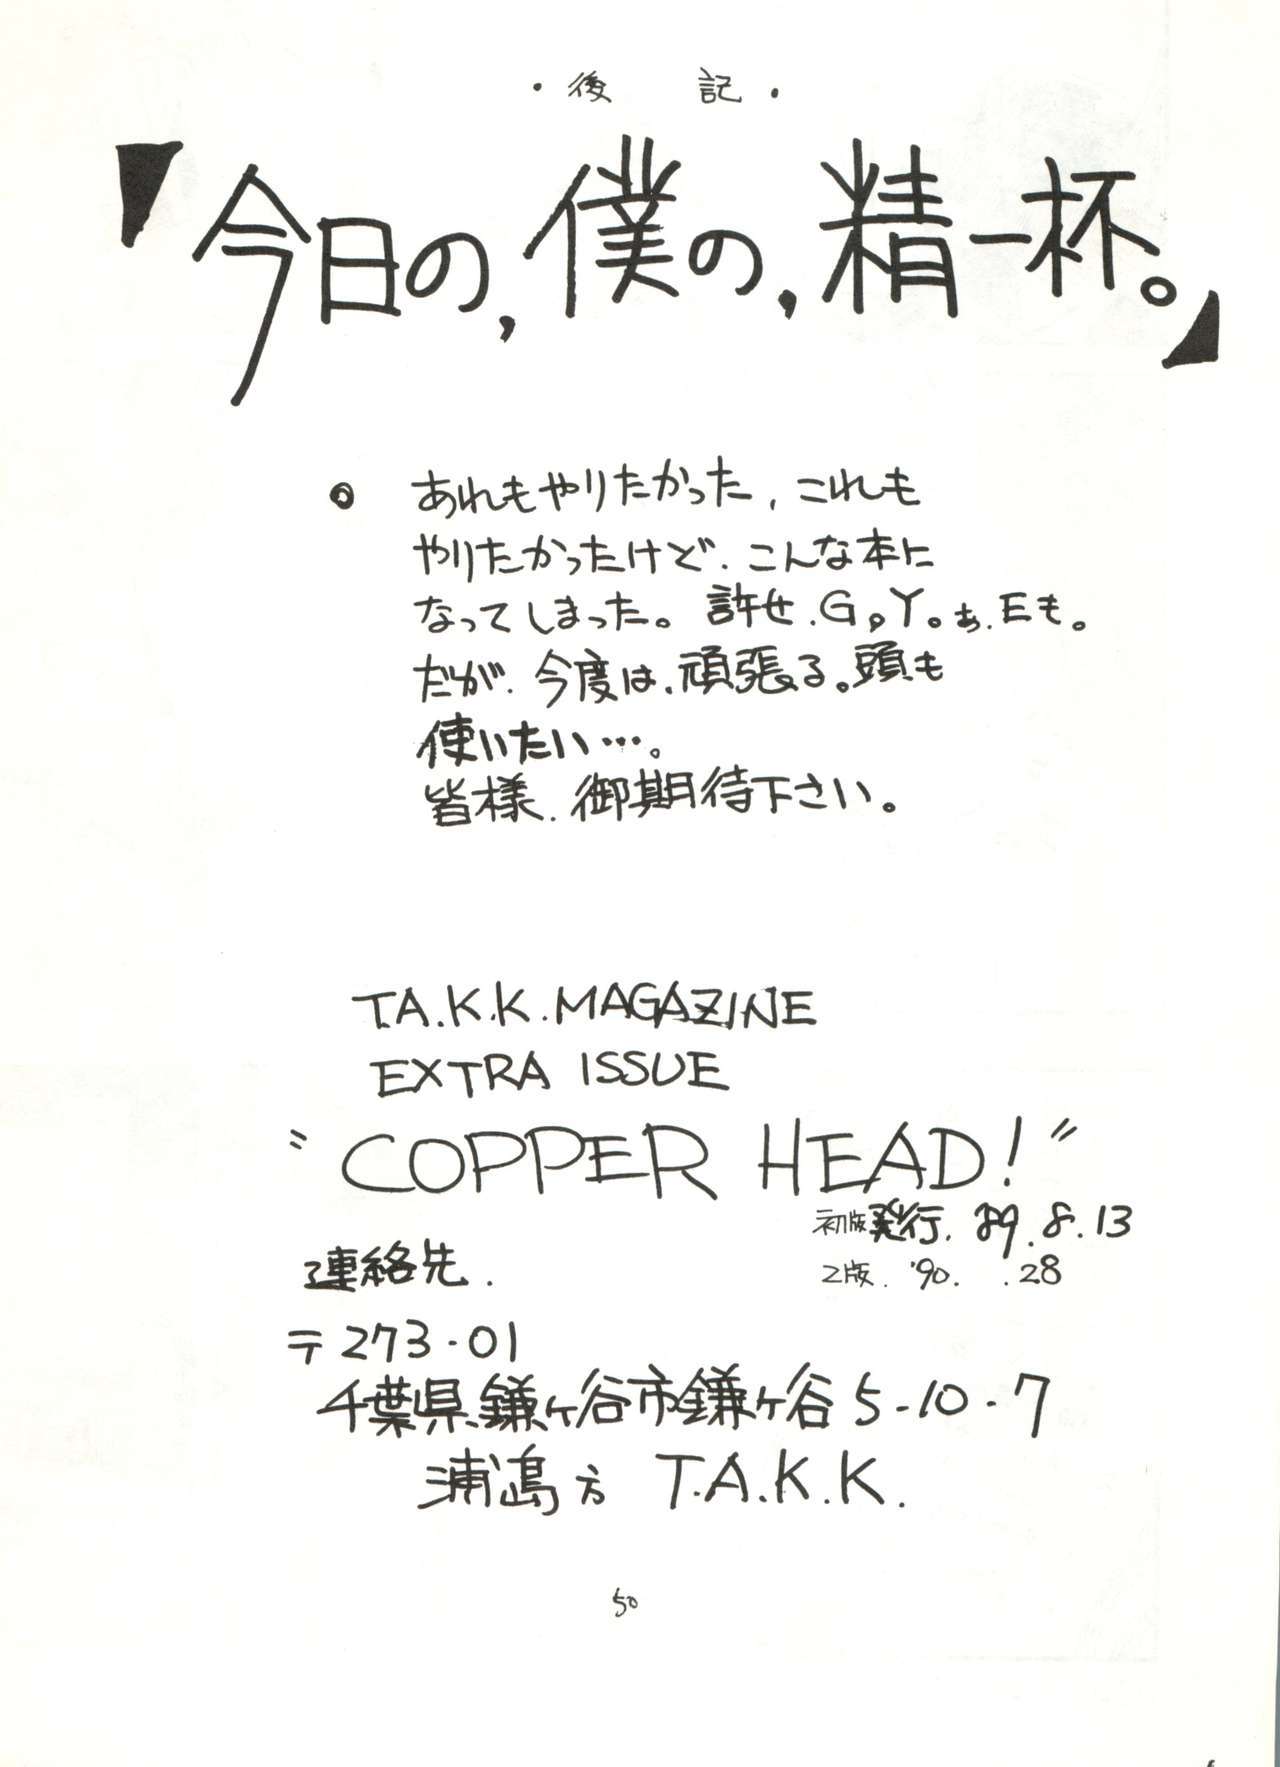 ・後　記・
『今日の,僕の,精一杯。』
◎ あれもやりたかった、これも
やりたかったけど、こんな本に
なってしまった。許せ、G,Y。あ、Eも。
だが、今度は、頑張る。頭も
使いたい…。
皆様、御期待下さい。
T.A.K.K. MAGAZINE
EXTRA ISSUE
"COPPER HEAD!"
初版発行. '89.8.13
2版. '90. .28
連絡先.
〒273-01
千葉県鎌ヶ谷市鎌ヶ谷5-10-7
浦嶋方 T.A.K.K.
50